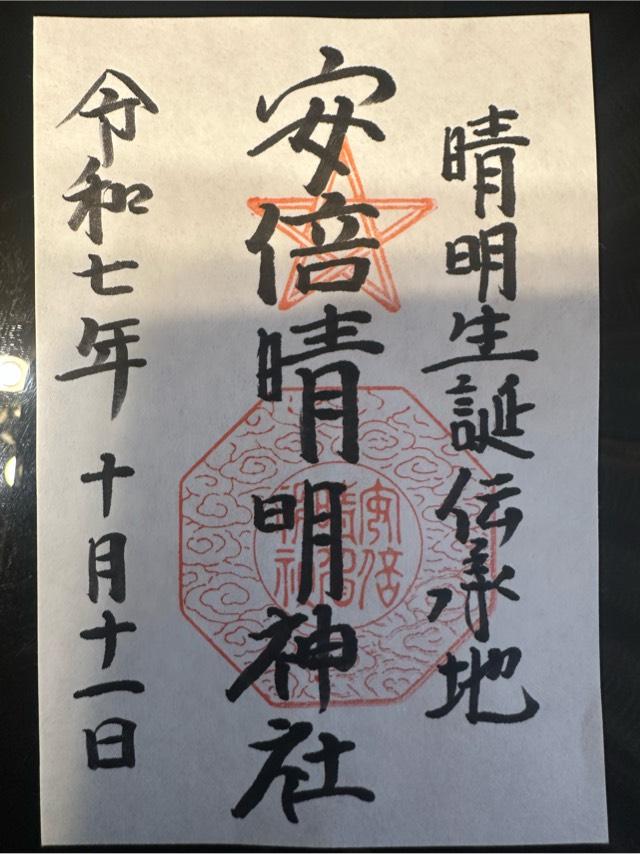 晴明生誕伝承地
安倍晴明神社
令和七年十月十一日
安倍
晴明
神社